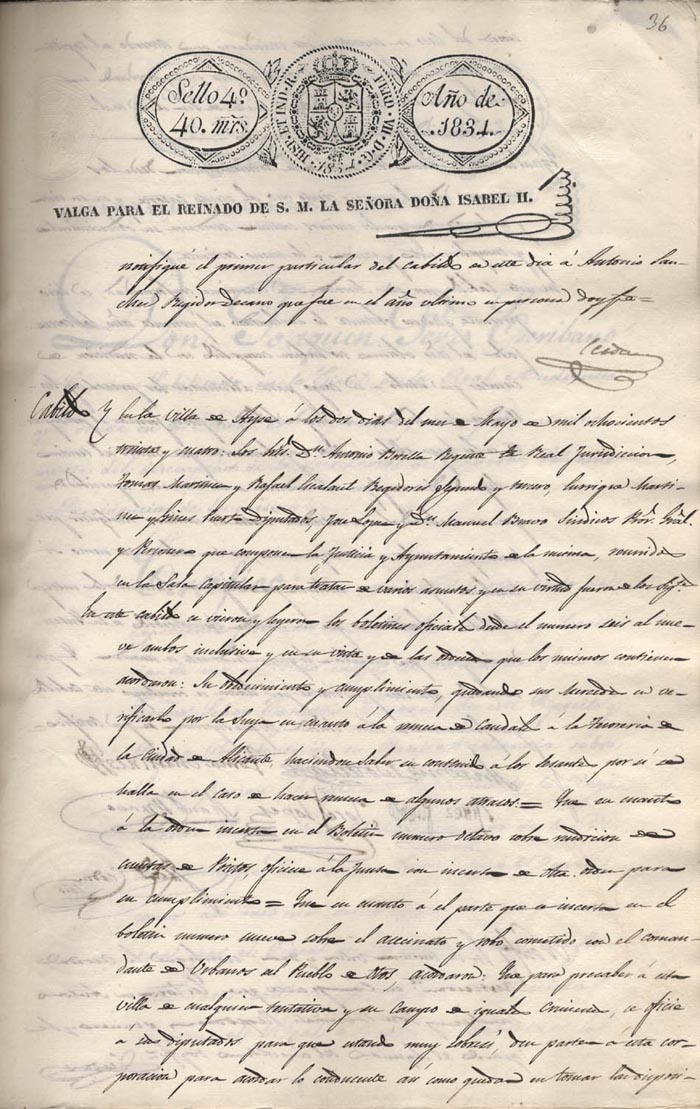 36
Sello 4º
40. mrs.
HISP. ET IND. R. FERD. VII. D. G.
Año de
1834.
VALGA PARA EL REINADO DE S. M. LA SEÑORA DOÑA ISABEL II.
notifiqué el primer particular del cabildo en este dia á Antonio San-
chez Regidor Decano que fue en el año ultimo en persona doy fe=
Cabildo Y En la villa de Aspe á los dos dias del mes de Mayo de mil ochocientos
treinta y cuatro: Los Sres. Dn. Antonio Botella Regente la Real Jurisdiccion,
Tomas Martinez y Rafael Malaut Regidores segundo y tercero, Enrique Marti-
nez y Gines Diputados, Jose Lopez y Dn. Manuel Bravo Sindicos Pror. Gral.
y Personero que componen la Justicia y Ayuntamiento de la misma, reunidos
en la Sala capitular para tratar de varios asuntos y en su virtud fueron los Sigtes.
En este cabildo se vieron y leyeron los boletines oficiales desde el numero seis al nue-
ve ambos inclusive y en su vista y de las ordenes que los mismos contienen
acordaron: Su obedecimiento y cumplimiento, quedando sus Mercedes en ve-
rificarlo por la Suya en cuanto á la remesa de caudales á la Tesoreria de
la Ciudad de Alicante, haciendose saber su contenido á los por si se
halla en el caso de hacer remesa de algunos atrasos. = Que en cuanto
á la orden inserta en el Boletin numero octavo sobre rendicion de
cuentas de Positos oficiese á la Junta con incerta de dha. orden para
su cumplimiento = Que en cuanto á el parte que se incerta en el
boletin numero nueve sobre el accinato y robo cometido con el coman-
dante de Urbanos del Pueblo de Otos, acordaron: Que para precaber á esta
villa de cualquier tentativa y su campo de igual, se oficie
á sus diputados para que estando muy sobre si, den partes á esta cor-
poracion para acordar lo conducente asi como quedan en tomar las disposi-